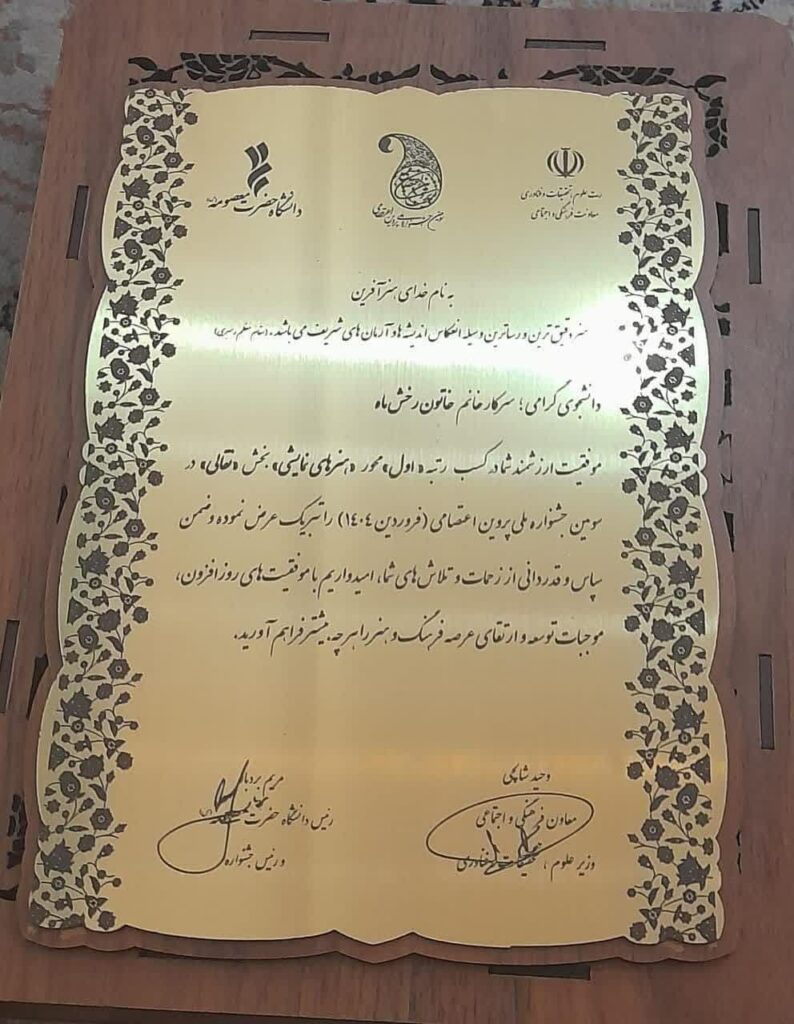 وزارت علوم، تحقیقات و فناوری
معاونت فرهنگی و اجتماعی
دانشگاه حضرت معصومه
به نام خدای هنرآفرین
هنر دقیق ترین و رساترین وسیله انعکاس اندیشه ها و آرمان های شریف می باشد. (مقام معظم رهبری)
دانشجوی گرامی؛ سرکار خانم خاتون رخش ماه
موفقیت ارزشمند شما در کسب رتبه «اول» محور «هنرهای نمایشی» بخش «نقالی» در
سومین جشنواره ملی پروین اعتصامی (فروردین ۱۴۰۴) را تبریک عرض نموده و ضمن
سپاس و قدردانی از زحمات و تلاش های شما، امیدواریم با موفقیت های روزافزون،
موجبات توسعه و ارتقای عرصه فرهنگ و هنر را هر چه بیشتر فراهم آورید.
وحید شالچی
معاون فرهنگی و اجتماعی
وزیر علوم، تحقیقات و فناوری
مریم بردبار
رئیس دانشگاه حضرت معصومه
و رئیس جشنواره